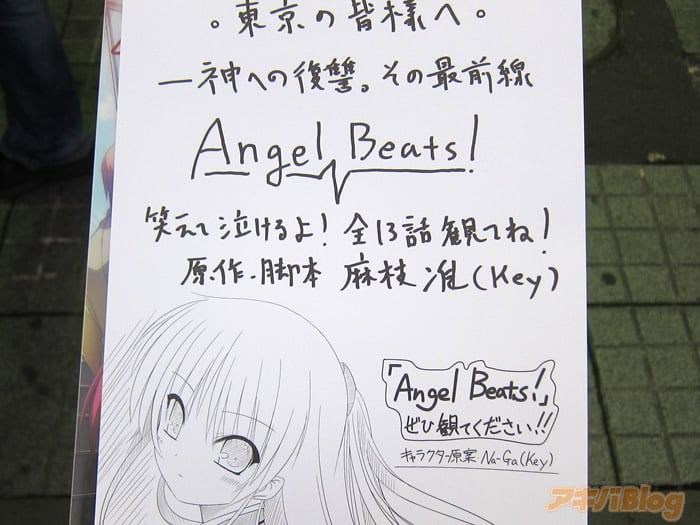 。東京の皆様へ。
—神への復讐。その最前線
Angel Beats!
笑えて泣けるよ！全13話観てね！
原作・脚本 麻枝准(Key)
「Angel Beats!」
ぜひ観てください!!
キャラクター原案 Na-Ga(Key)
アキバBlog